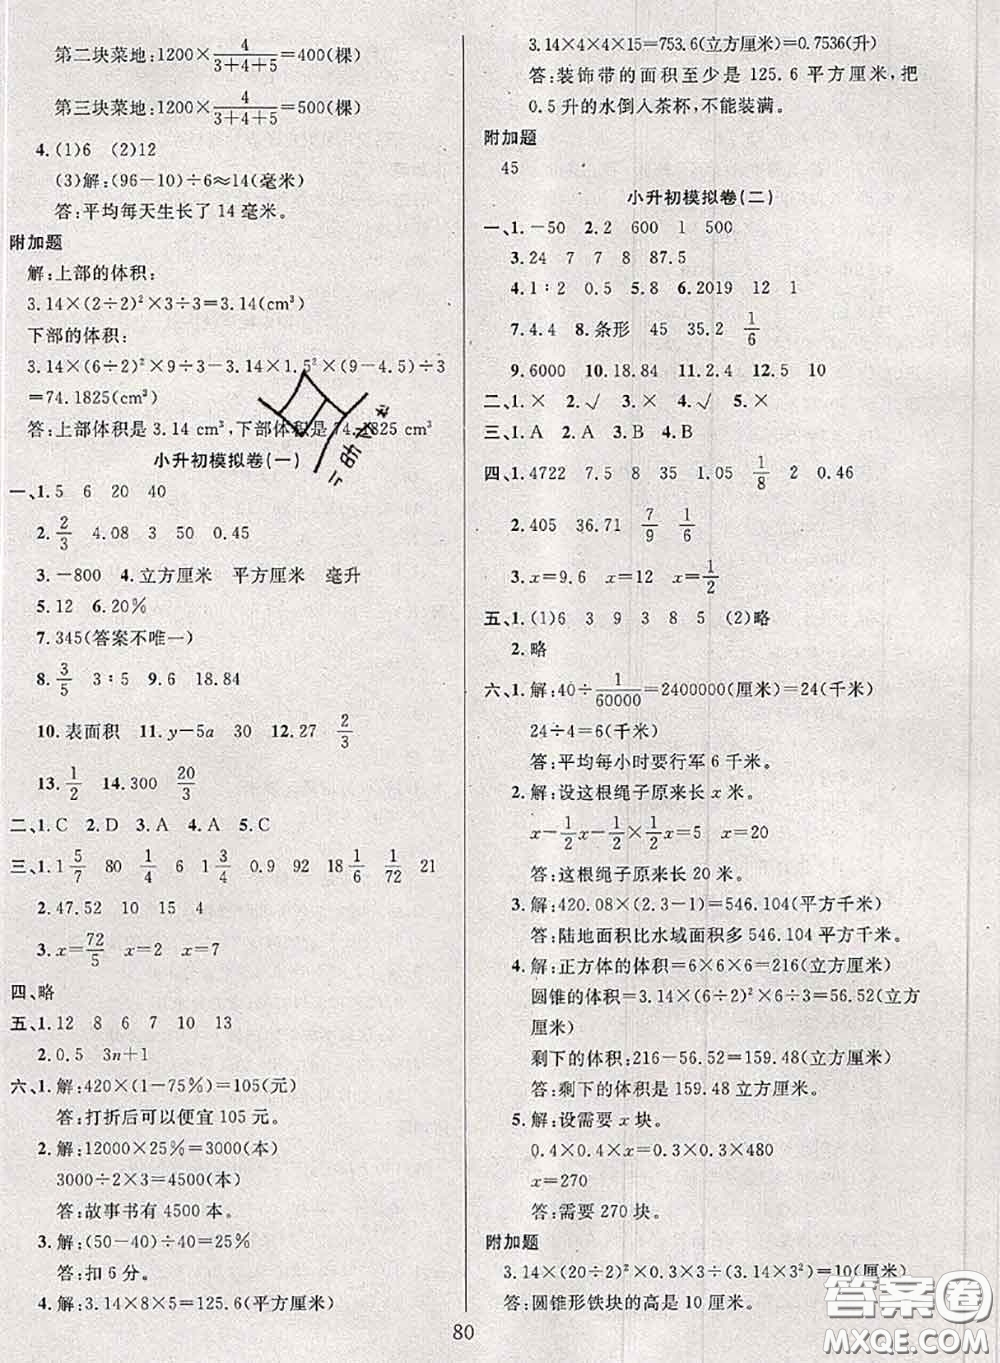 第二块菜地:1200×4/(3+4+5)=400(棵)
第三块菜地:1200×4/(3+4+5)=500(棵)
4.(1)6 (2)12
(3)解:(96-10)÷6≈14(毫米)
答:平均每天生长了 14 毫米。
附加题
解:上部的体积:
3.14×(2÷2)²×3÷3=3.14(cm³)
下部的体积:
3.14×(6÷2)²×9÷3-3.14×1.5²×(9-4.5)÷3
=74.1825(cm³)
答:上部体积是 3.14 cm³,下部体积是 74.1825 cm³
小升初模拟卷(一)
一、1.5 6 20 40
2. 2/3 4.08 3 50 0.45
3.-800 4.立方厘米 平方厘米 毫升
5.12 6.20%
7.345(答案不唯一)
8. 3/5 3∶5 9.6 18.84
10.表面积 11.y-5a 30 12.27 2/3
13. 1/2 14.300 20/3
二、1.C 2.D 3.A 4.A 5.C
三、1. 1 5/7 80 1/4 6 1 3/4 0.9 92 18 1/6 1/72 21
2.47.52 10 15 4
3.x=72/5 x=2 x=7
四、略
五、1.12 8 6 7 10 13
2.0.5 3n+1
六、1.解:420×(1-75%)=105(元)
答:打折后可以便宜 105 元。
2.解:12000×25%=3000(本)
3000÷2×3=4500(本)
答:故事书有 4500 本。
3.解:(50-40)÷40=25%
答:扣 6 分。
4.解:3.14×8×5=125.6(平方厘米)
3.14×4×4×15=753.6(立方厘米)=0.7536(升)
答:装饰带的面积至少是 125.6 平方厘米,把
0.5 升的水倒入茶杯,不能装满。
附加题
45
小升初模拟卷(二)
一、1.-50 2.2 600 1 500
3.24 7 7 8 87.5
4.1∶2 0.5 5.8 6.2019 12 1
7.4.4 8.条形 45 35.2 1/6
9.6000 10.18.84 11.2 12.5 10
二、1.× 2.√ 3.× 4.√ 5.×
三、1.A 2.B 3.A 4.B
四、1.4722 7.5 8 35 0.25 1/8 2 0.46
2.405 36.71 7/9 1/6
3.x=9.6 x=12 x=1/2
五、1.(1)6 3 9 3 8 5 (2)略
2.略
六、1.解:40÷1/60000=2400000(厘米)=24(千米)
24÷4=6(千米)
答:平均每小时要行军 6 千米。
2.解:设这根绳子原来长 x 米。
x-1/2x-1/2×1/2x=5 x=20
答:这根绳子原来长 20 米。
3.解:420.08×(2.3-1)=546.104(平方千米)
答:陆地面积比水域面积多 546.104 平方千米。
4.解:正方体的体积=6×6×6=216(立方厘米)
圆锥的体积=3.14×(6÷2)²×6÷3=56.52(立方
厘米)
剩下的体积:216-56.52=159.48(立方厘米)
答:剩下的体积是 159.48 立方厘米。
5.解:设需要 x 块。
0.4×0.4x=0.3×0.3×480
x=270
答:需要 270 块。
附加题
3.14×(20÷2)²×0.3×3÷(3.14×3²)=10(厘米)
答:圆锥形铁块的高是 10 厘米。
80
答案圈
MXQE.COM